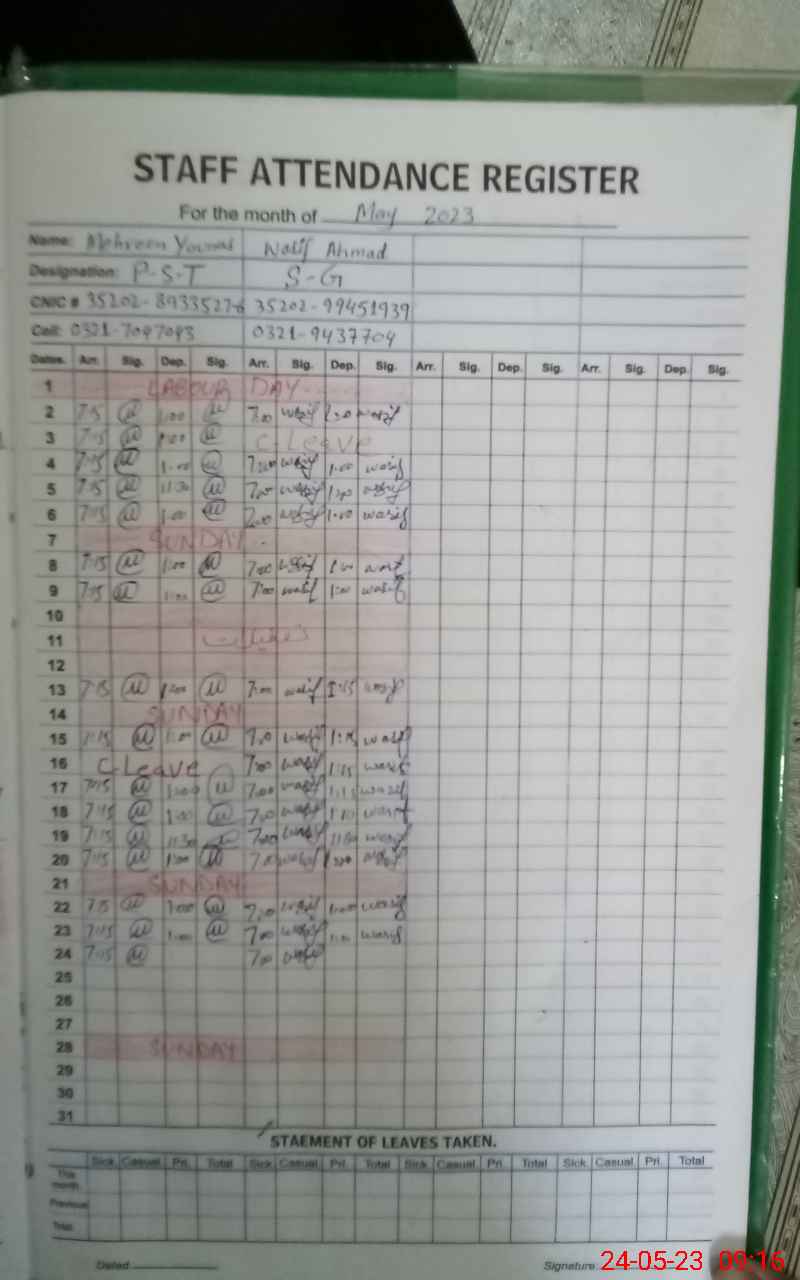 STAFF ATTENDANCE REGISTER
For the month of May 2023
Name: Mehreen Wasif Ahmad
Designation: P-S-T S-G
CNIC # 35202-89335276 35202-99451939
Cell: 0321-7047043 0321-9437704
Dates. Arr. Sig. Dep. Sig. Arr. Sig. Dep. Sig. Arr. Sig. Dep. Sig. Arr. Sig. Dep. Sig.
1 LABOUR DAY
2 7:15 1:00 7:00 wasif 1:00 wasif
3 7:15 1:00 C-Leave
4 7:15 1:00 7:00 wasif 1:00 wasif
5 7:15 11:30 7:00 wasif wasif
6 7:15 1:00 7:00 wasif 1:00 wasif
7 SUNDAY
8 7:15 1:00 7:00 wasif 1:00 wasif
9 7:15 1:00 7:00 wasif 1:00 wasif
10
11 تعطیلات
12
13 7:15 1:00 7:00 wasif 1:15 wasif
14 SUNDAY
15 7:15 1:00 7:00 wasif 1:15 wasif
16 C-Leave 7:00 wasif 1:15 wasif
17 7:15 1:00 7:00 wasif 1:15 wasif
18 7:15 1:00 7:00 wasif wasif
19 7:15 11:30 7:00 wasif wasif
20 7:15 1:00 7:00 wasif 1:00 wasif
21 SUNDAY
22 7:15 1:00 7:00 wasif 1:00 wasif
23 7:15 1:00 7:00 wasif 1:00 wasif
24 7:15 7:00 wasif
25
26
27
28 SUNDAY
29
30
31
STAEMENT OF LEAVES TAKEN.
Sick Casual Pri. Total Sick Casual Pri. Total Sick Casual Pri. Total Sick Casual Pri. Total
This month
Previous
Total
Dated Signature
24-05-23 09:16